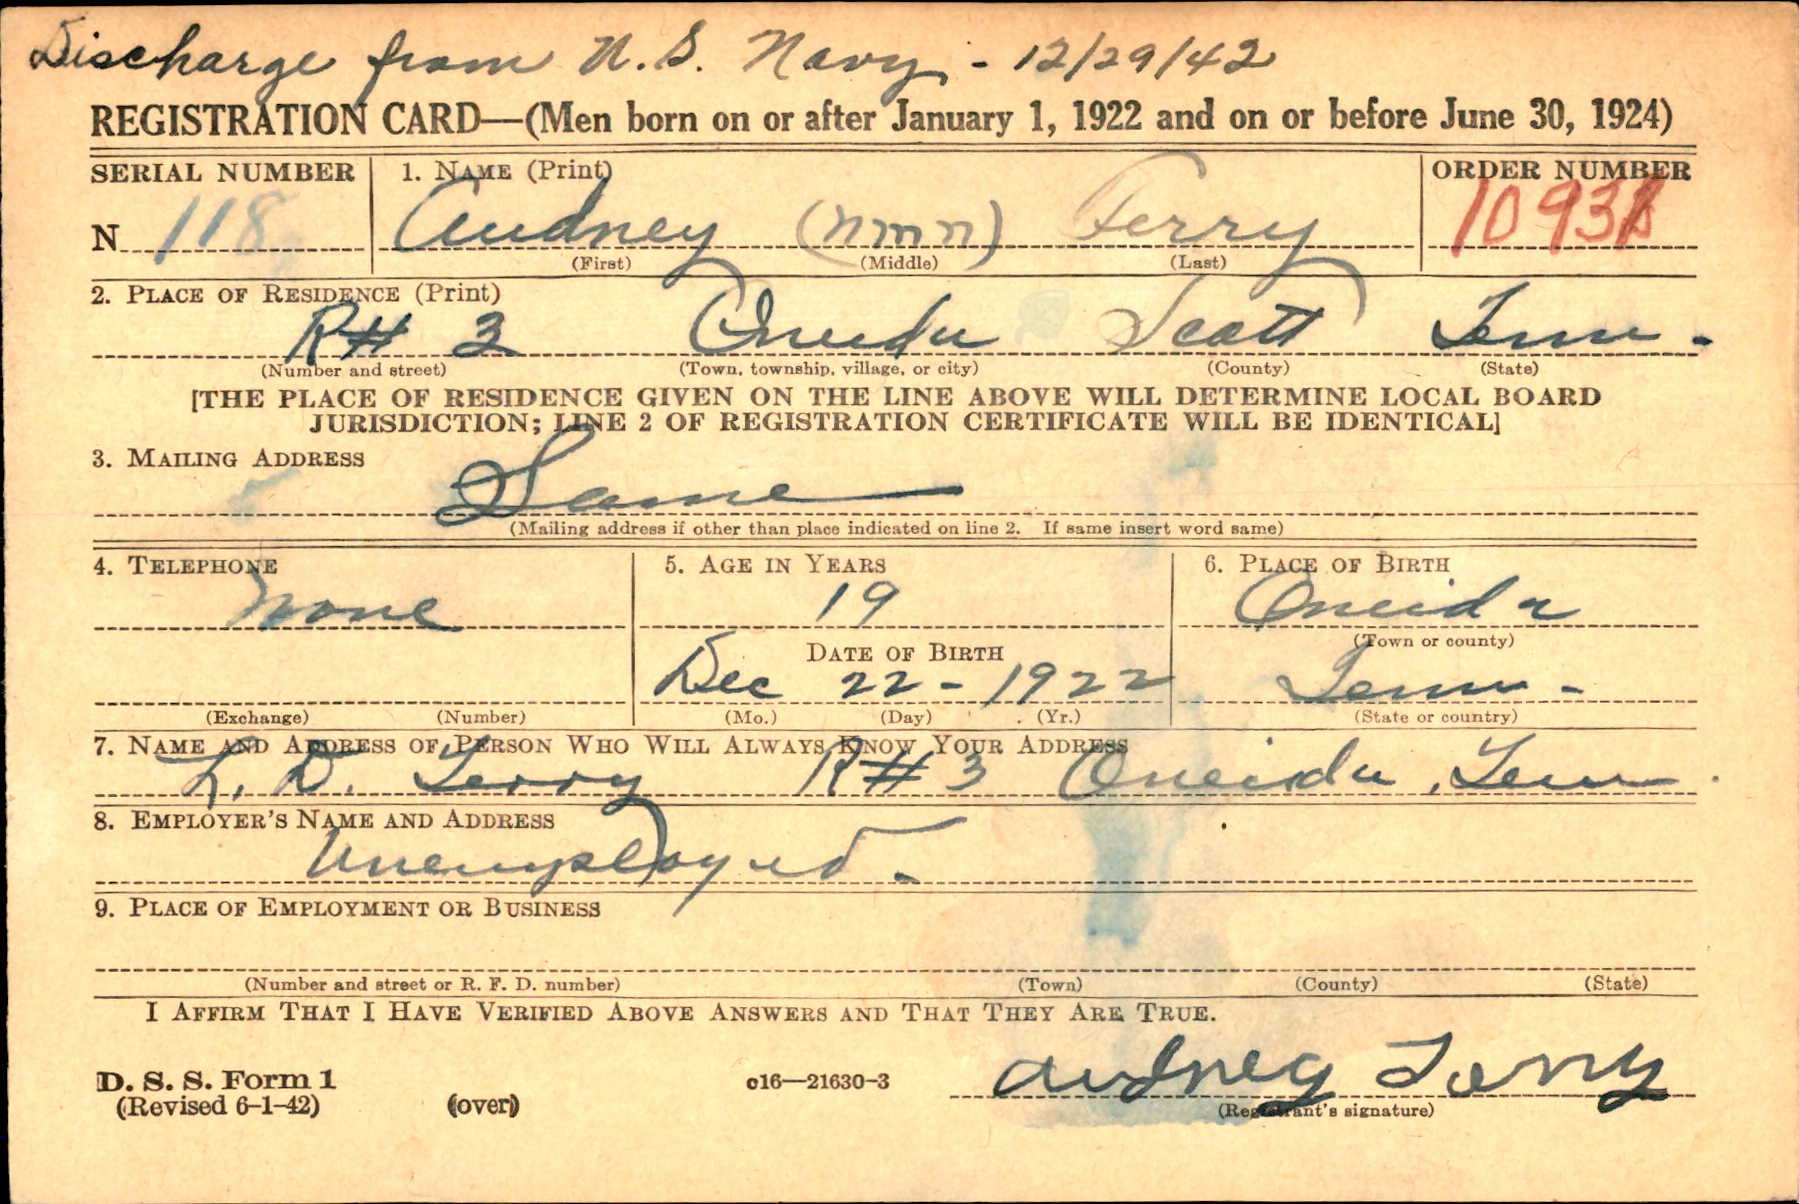 Discharge from U.S. Navy - 12/29/42
REGISTRATION CARD—(Men born on or after January 1, 1922 and on or before June 30, 1924)
SERIAL NUMBER 1. NAME (Print) ORDER NUMBER
N 118 Audney (nmn) Terry 10931
(First) (Middle) (Last)
2. PLACE OF RESIDENCE (Print)
R# 3 Oneida Scott Tenn.
(Number and street) (Town, township, village, or city) (County) (State)
[THE PLACE OF RESIDENCE GIVEN ON THE LINE ABOVE WILL DETERMINE LOCAL BOARD
JURISDICTION; LINE 2 OF REGISTRATION CERTIFICATE WILL BE IDENTICAL]
3. MAILING ADDRESS
Same
(Mailing address if other than place indicated on line 2. If same insert word same)
4. TELEPHONE 5. AGE IN YEARS 6. PLACE OF BIRTH
None 19 Oneida
(Town or county)
DATE OF BIRTH
Dec 22 - 1922 Tenn -
(Exchange) (Number) (Mo.) (Day) (Yr.) (State or country)
7. NAME AND ADDRESS OF PERSON WHO WILL ALWAYS KNOW YOUR ADDRESS
L. D. Terry R# 3 Oneida, Tenn.
8. EMPLOYER'S NAME AND ADDRESS
Unemployed.
9. PLACE OF EMPLOYMENT OR BUSINESS
(Number and street or R. F. D. number) (Town) (County) (State)
I AFFIRM THAT I HAVE VERIFIED ABOVE ANSWERS AND THAT THEY ARE TRUE.
D. S. S. Form 1 c16—21630-3 Audney Terry
(Revised 6-1-42) (over) (Registrant's signature)